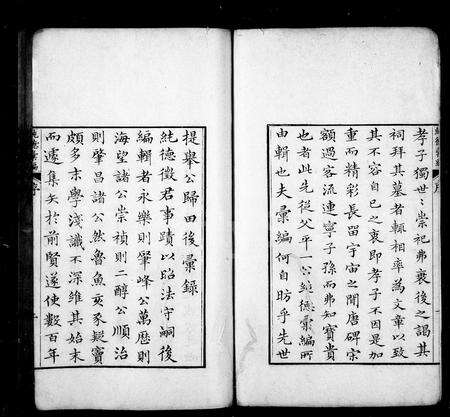 孝子獨世世崇祀弗衰後之謁其
祠拜其墓者輒相率為文章以致
其不容自已之衷即孝子不因是加
重而精彩長留宇宙之間唐碑宗
額過客流連寧子孫而弗知寶貴
也者此先從父平一公純德彙編所
由輯也夫彙編何自昉乎先世
提舉公歸田後彙錄
純德徵君事蹟以昭法守嗣後
編輯者永樂則肇峰公萬曆則
海望諸公崇禎則二醇公順治
則肇昌諸公然魯魚亥豕疑竇
頗多末學淺識不深維其始末
而遽集矢於前賢遂使數百年